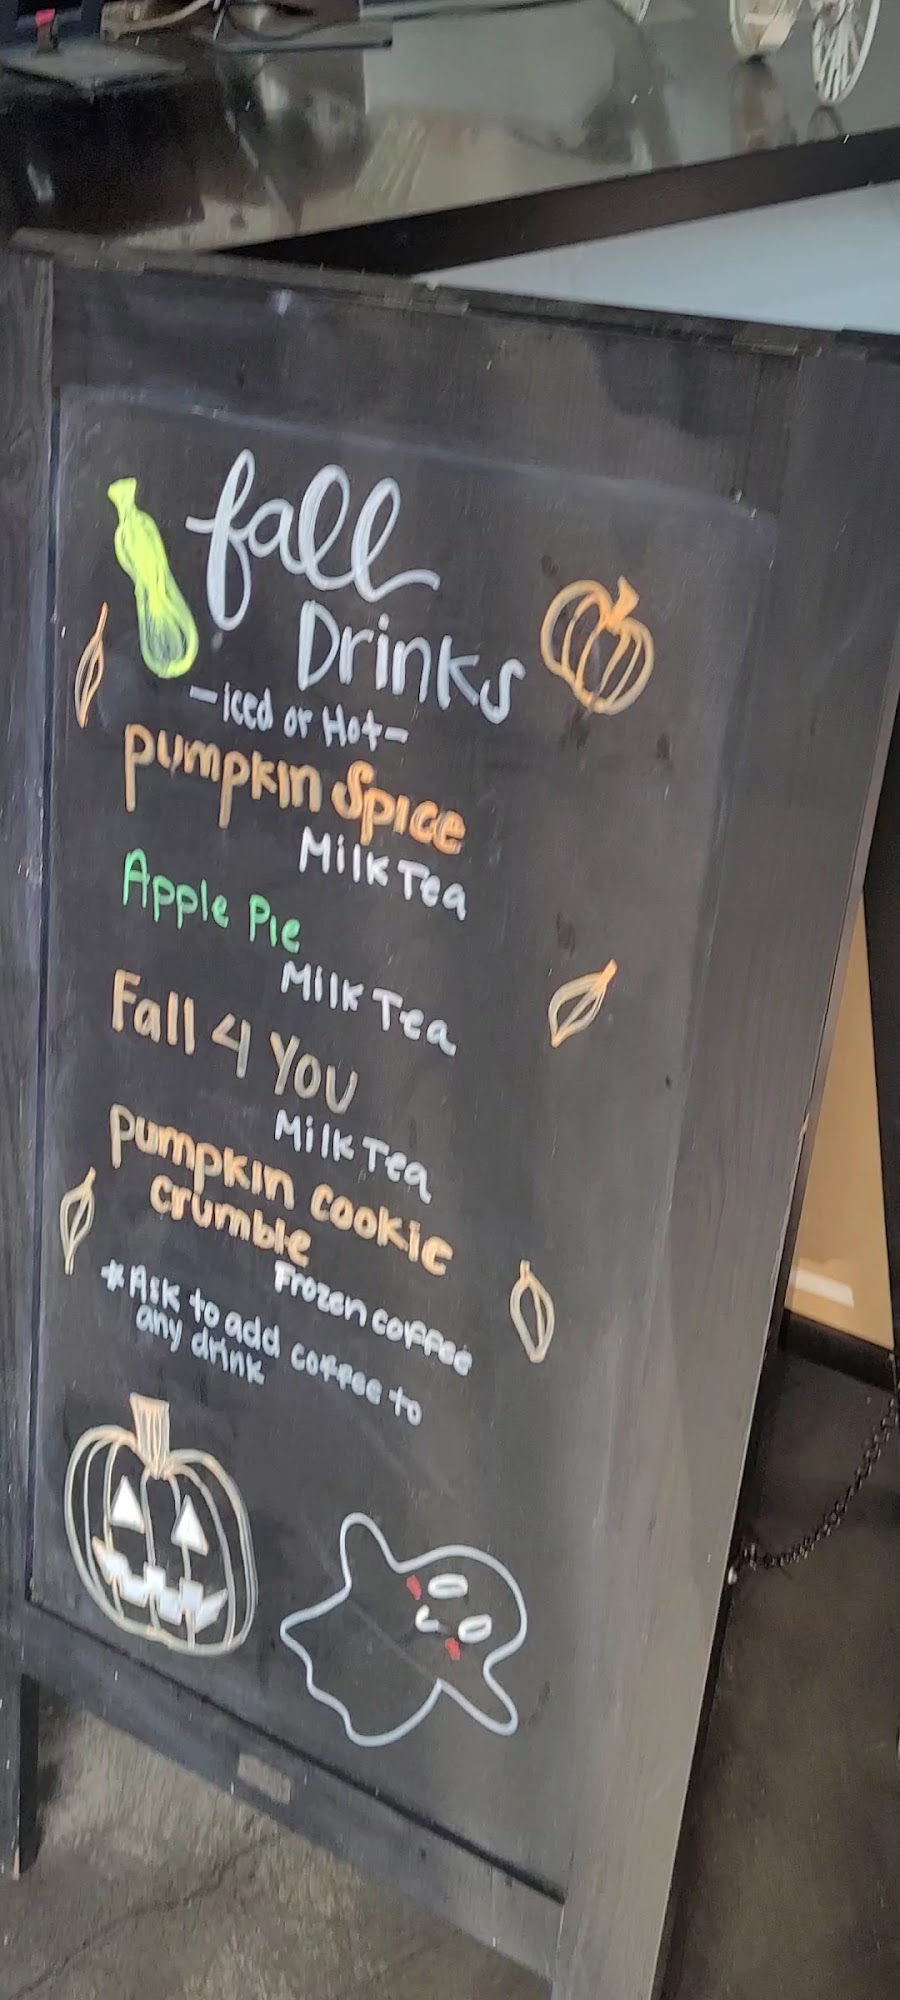 fall
Drinks
-iced or Hot-
pumpkin Spice
Milk Tea
Apple Pie
Milk Tea
Fall 4 You
Milk Tea
pumpkin cookie
crumble
Frozen coffee
*Ask to add coffee to
any drink